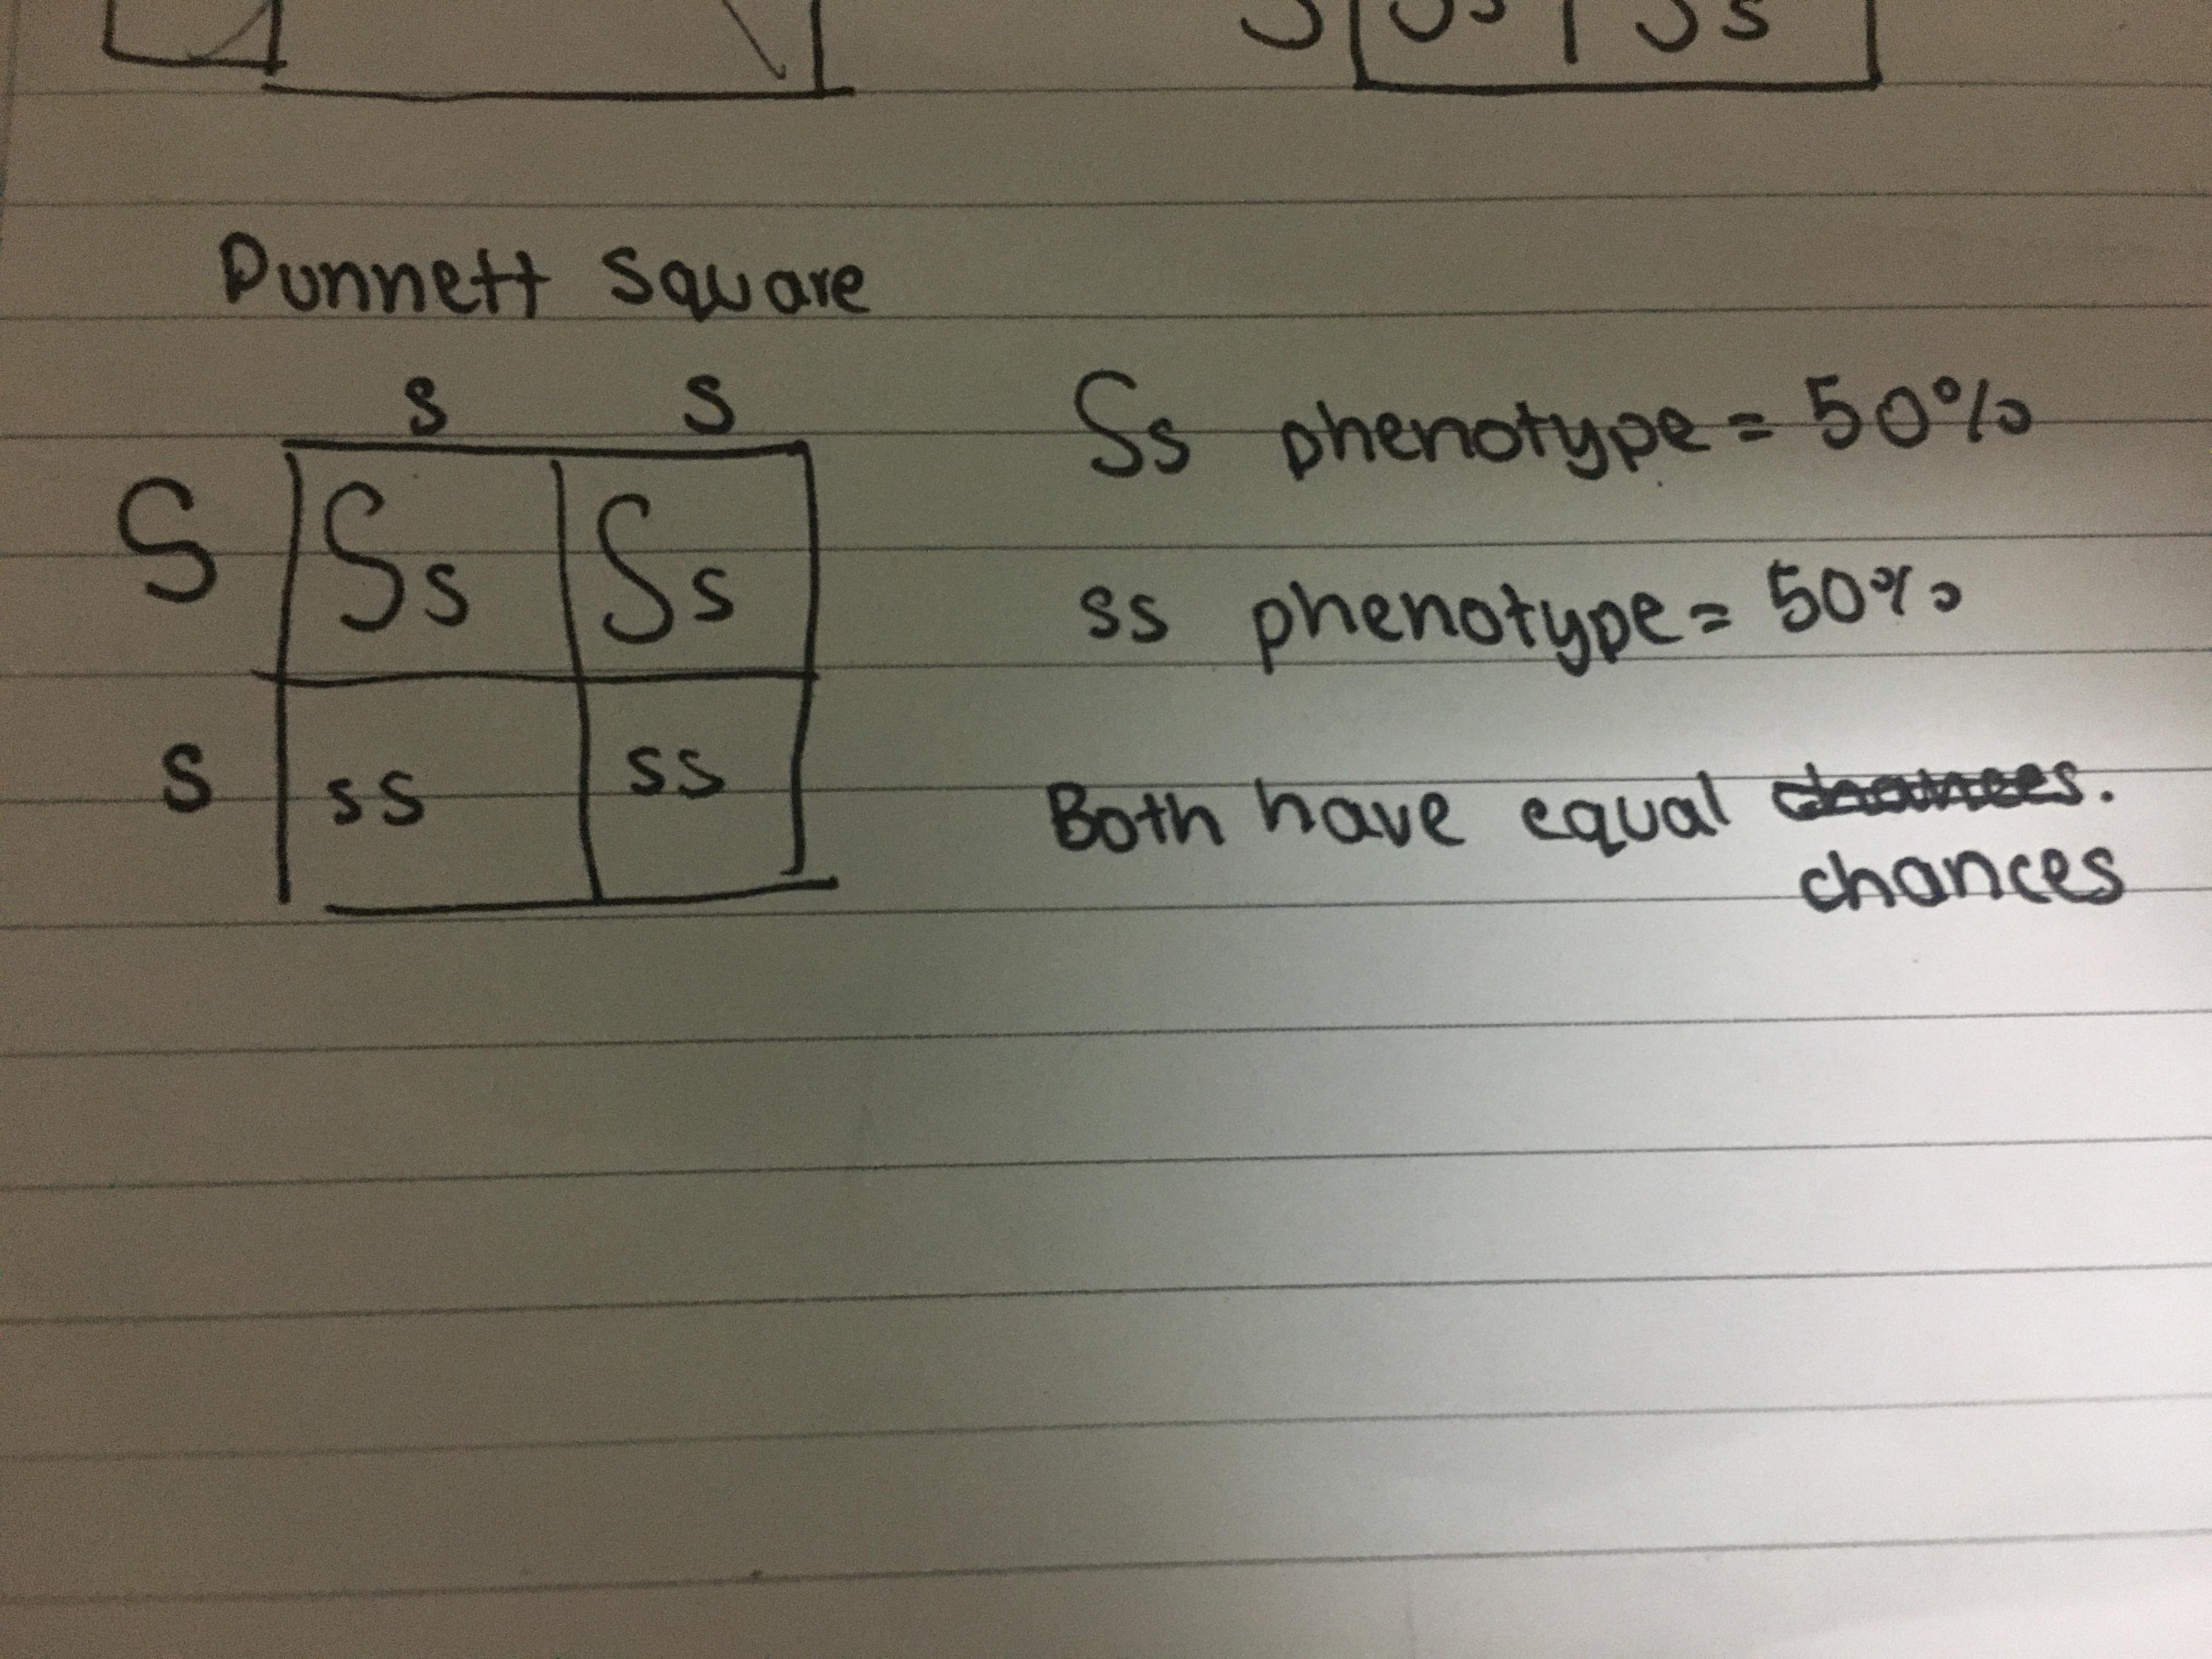 S Ss
Punnett Square
s s
S Ss Ss
s ss ss
Ss phenotype = 50%
ss phenotype = 50%
Both have equal chances.
chances